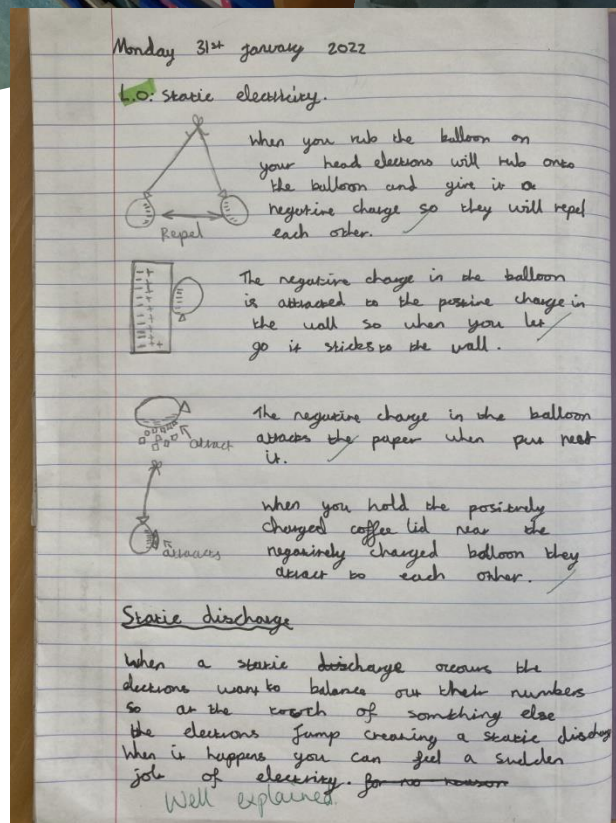 Monday 31st January 2022
L.O: Static electricity.
When you rub the balloon on
your head electrons will rub onto
the balloon and give it a
negative charge so they will repel
each other.
Repel
The negative charge in the balloon
is attracted to the positive charge in
the wall so when you let
go it sticks to the wall.
The negative charge in the balloon
attacks the paper when put next
it.
attract
When you hold the positively
charged coffee lid near the
negatively charged balloon they
attract to each other.
attracts
Static discharge
When a static discharge occurs the
electrons want to balance out their numbers
so at the touch of somthing else
the electrons Jump creating a static discharg
When it happens you can feel a sudden
jolt of electricity. for no reason
Well explained.